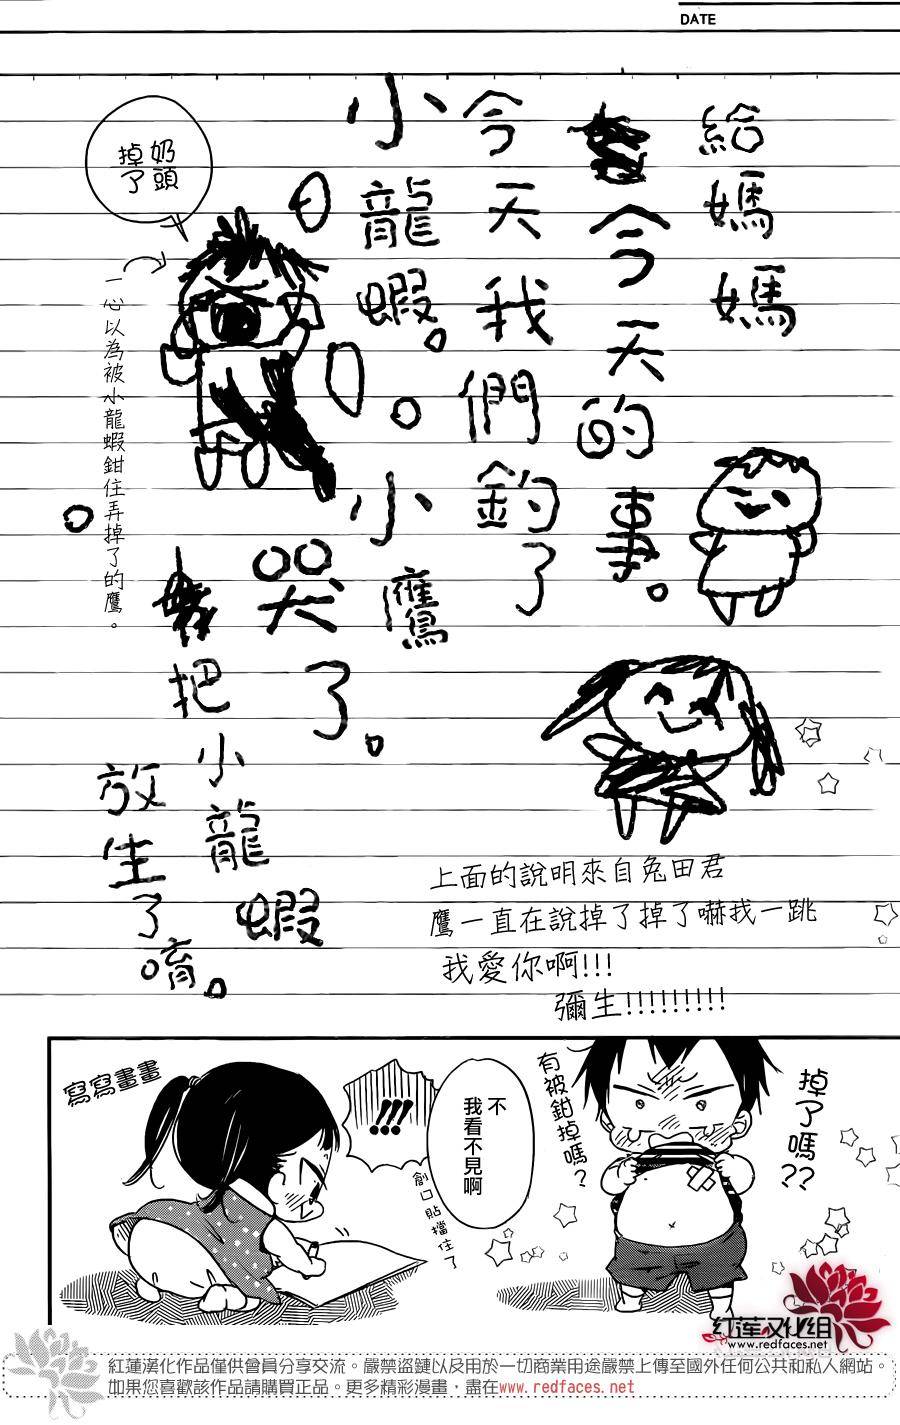 DATE
給媽媽
今天的事。
今天我們釣了
小龍蝦。
小鷹
哭了。
把小龍蝦
放生了唷。
奶頭
掉了
一心以為被小龍蝦鉗住弄掉了的鷹。
上面的說明來自兔田君
鷹一直在說掉了掉了嚇我一跳
我愛你啊!!!
彌生!!!!!!!!!
掉了嗎??
有被鉗掉嗎?
不
我看不見啊
創口貼擋住了
!!!
寫寫畫畫
紅蓮汉化组
www.redfaces.net
紅蓮漢化作品僅供會員分享交流。嚴禁盜鏈以及用於一切商業用途嚴禁上傳至國外任何公共和私人網站。
如果您喜歡該作品請購買正品。更多精彩漫畫，盡在www.redfaces.net